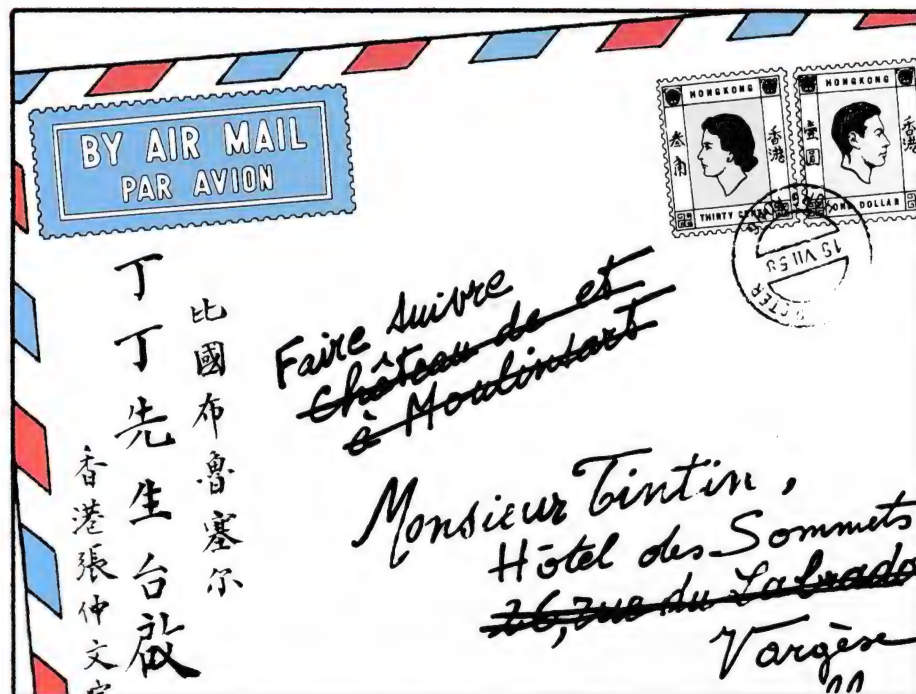 BY AIR MAIL
PAR AVION
HONGKONG
叁角
香港
THIRTY
HONGKONG
壹圓
香港
ONE DOLLAR
15 VII 58
比國布魯塞尔
丁丁先生台啟
香港張仲文
Faire suivre
Château de et
à Moulinsart
Monsieur Tintin,
Hôtel des Sommets
26, rue du
Vargèse